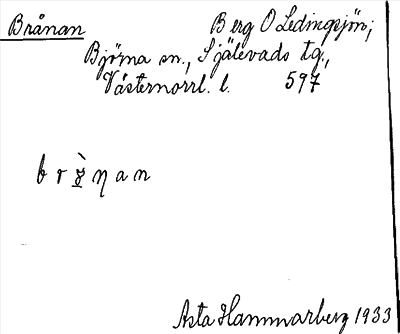 Brånan Berg O Ledingsjön;
Björna sn., Själevads tg.,
Västernorrl. l. 597
Asta Hammarberg 1933